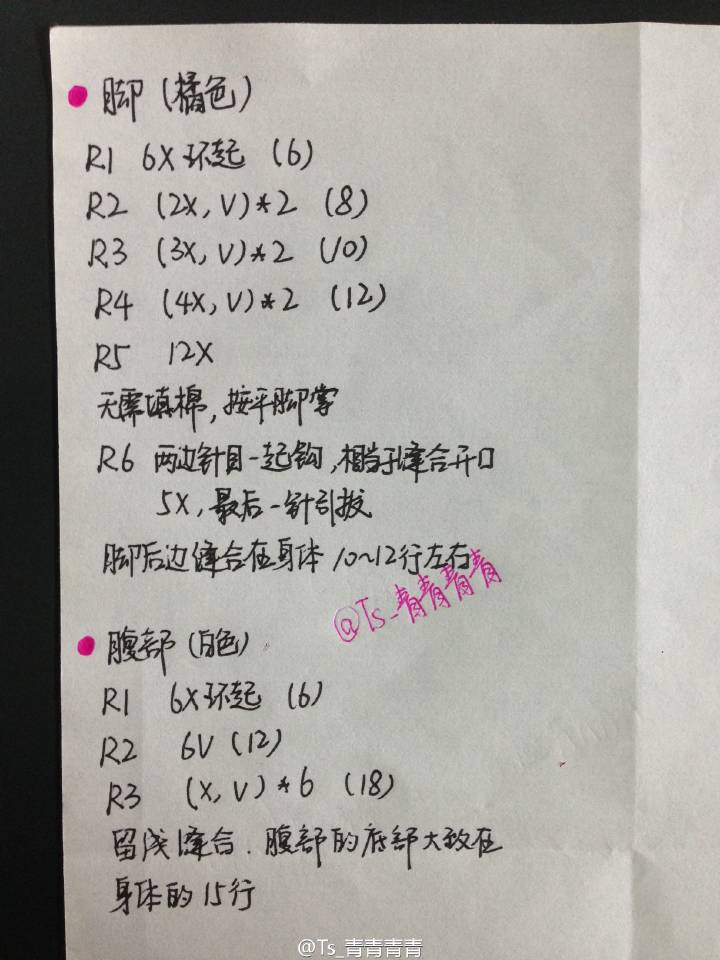 脚(橘色)
R1 6X环起 (6)
R2 (2X, V)*2 (8)
R3 (3X, V)*2 (10)
R4 (4X, V)*2 (12)
R5 12X
无需填棉,按平脚掌
R6 两边针目一起钩,相当于缝合开口
5X,最后一针引拔
脚后边缝合在身体 10~12行左右
@Ts_青青青青
腹部(白色)
R1 6X环起 (6)
R2 6V (12)
R3 (X, V)*6 (18)
留线缝合. 腹部的底部大致在
身体的15行
@Ts_青青青青